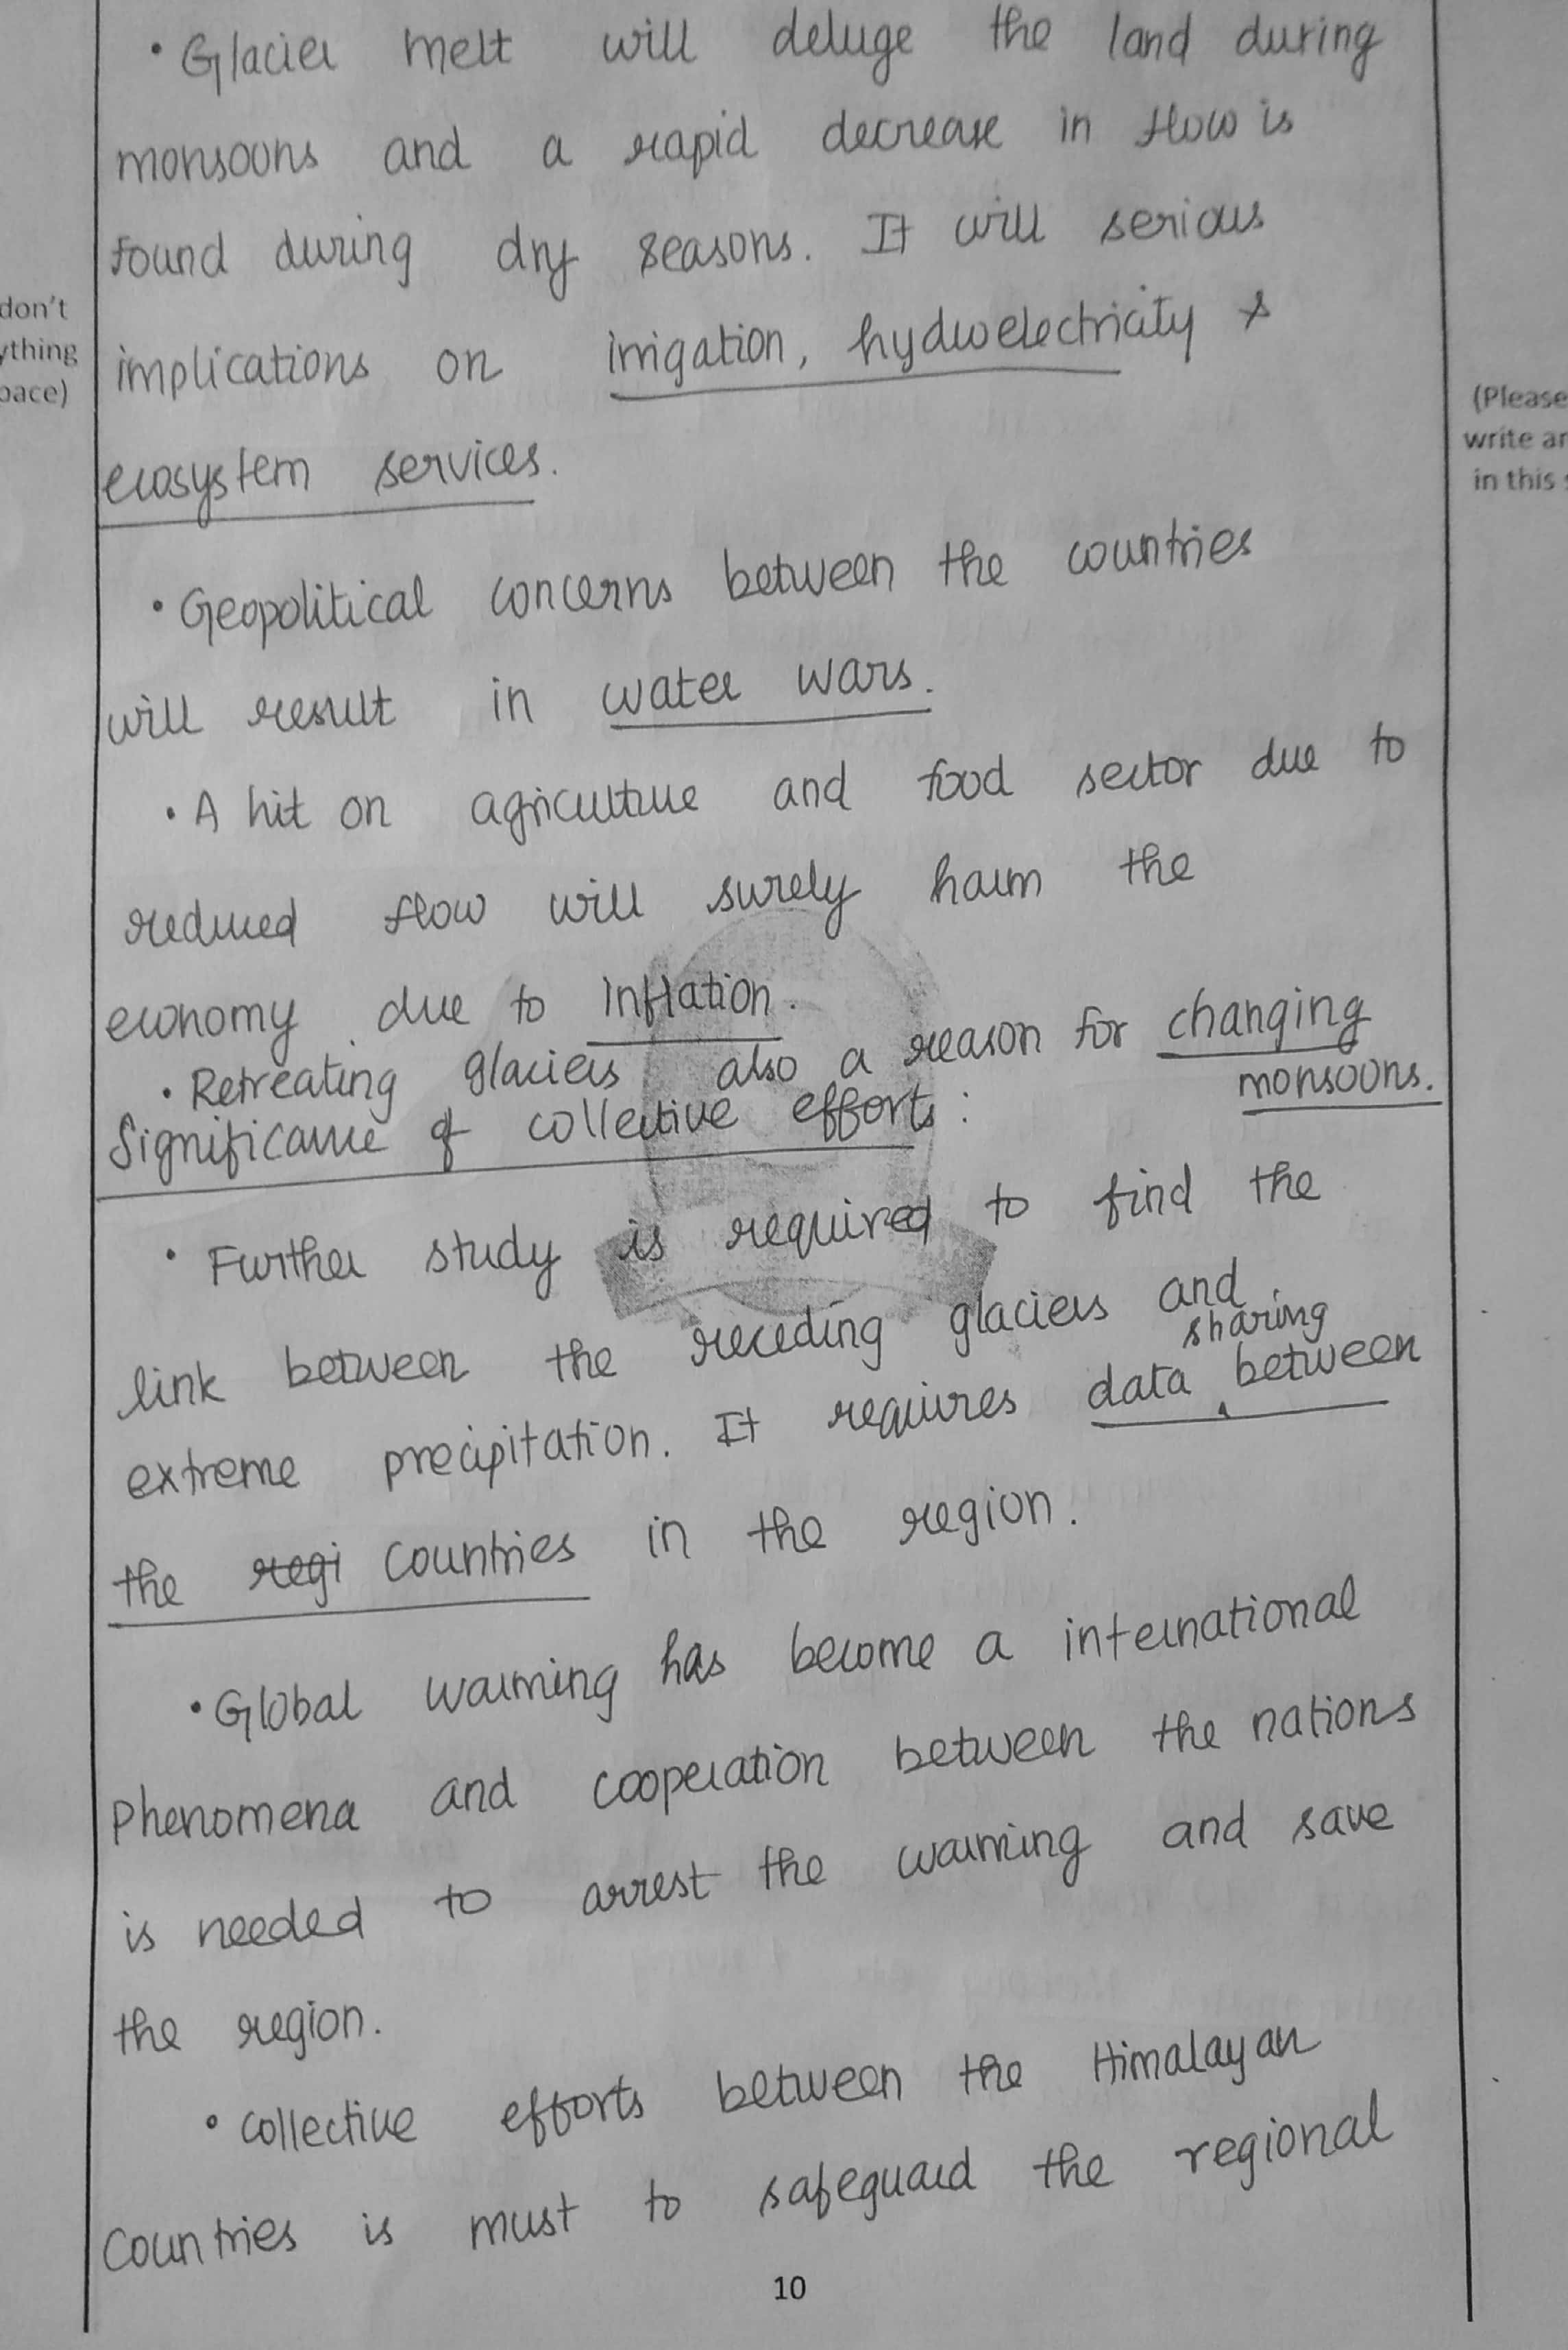 • Glacier melt will deluge the land during
monsoons and a rapid decrease in flow is
found during dry seasons. It will serious
implications on irrigation, hydroelectricity &
ecosystem services.
• Geopolitical concerns between the countries
will result in water wars.
• A hit on agriculture and food sector due to
reduced flow will surely harm the
economy due to Inflation.
• Retreating glaciers also a reason for changing
monsoons.
Significance of collective efforts:
• Further study is required to find the
link between the receding glaciers and
extreme precipitation. It requires data sharing between
the regi countries in the region.
• Global warming has become a international
Phenomena and cooperation between the nations
is needed to arrest the warming and save
the region.
• Collective efforts between the Himalayan
Countries is must to safeguard the regional
10
don't
ything
pace)
(Please
write an
in this s